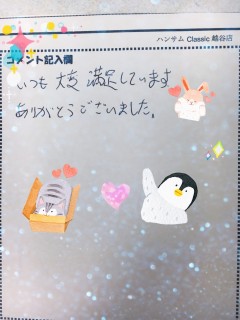 ハンサム Classic 越谷店
コメント記入欄
いつも 大変 満足しています
ありがとうございました。